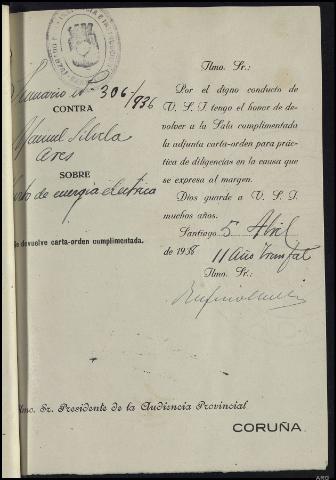 Sumario Nº 306/936
CONTRA
Manuel Silvela
Ares
SOBRE
Hurto de energía eléctrica
Se devuelve carta-orden cumplimentada.
Ilmo. Sr.:
Por el digno conducto de
V. S. I. tengo el honor de de-
volver a la Sala cumplimentada
la adjunta carta-orden para prác-
tica de diligencias en la causa que
se expresa al margen.
Dios guarde a V. S. I.
muchos años.
Santiago 5 Abril
de 1938 II Año Triunfal
Ilmo. Sr.:
Ilmo. Sr. Presidente de la Audiencia Provincial
CORUÑA.